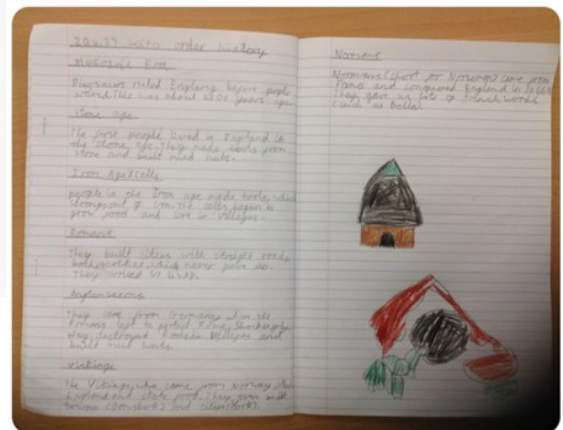 order history
Mesozoic Era
Dinosaurs ruled England before people
This was about years ago
Stone age
The first people lived in England in
the stone age. They made tools from
stone and built mud huts.
Iron Age/Celts
people in the Iron age made tools, which
out of iron. The celts began to
grow food and live in villages.
Romans
They built cities with straight roads
which never
They arrived in
Anglosaxons
They came from Germany when the
Romans left to protect Rome.
they destroyed Roman villages and
built mud huts.
Vikings
The Vikings, who came from Norway,
England and stole food. They even built
towns (Ormskirk) and cities (York).
Normans
Normans (short for Norsemen) came from
France and conquered England in 1066.
They gave us lots of French words
(such as